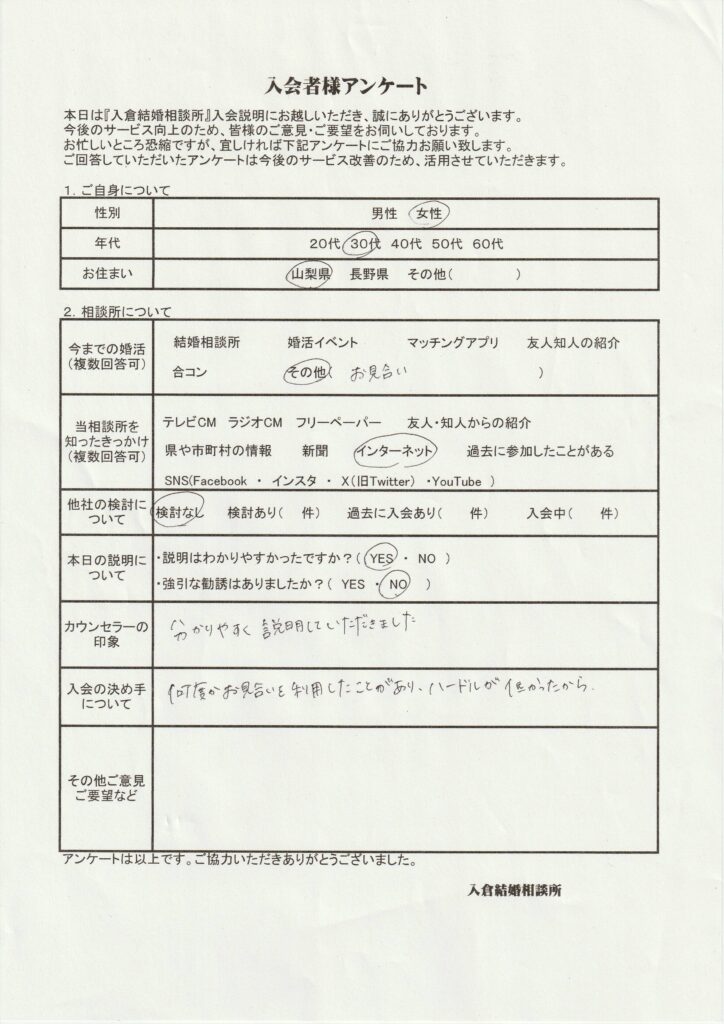 入会者様アンケート
本日は『入倉結婚相談所』入会説明にお越しいただき、誠にありがとうございます。
今後のサービス向上のため、皆様のご意見・ご要望をお伺いしております。
お忙しいところ恐縮ですが、宜しければ下記アンケートにご協力お願い致します。
ご回答していただいたアンケートは今後のサービス改善のため、活用させていただきます。
1. ご自身について
性別 男性 女性
年代 20代 30代 40代 50代 60代
お住まい 山梨県 長野県 その他( )
2. 相談所について
今までの婚活
(複数回答可)
結婚相談所 婚活イベント マッチングアプリ 友人知人の紹介
合コン その他( お見合い )
当相談所を
知ったきっかけ
(複数回答可)
テレビCM ラジオCM フリーペーパー 友人・知人からの紹介
県や市町村の情報 新聞 インターネット 過去に参加したことがある
SNS(Facebook ・ インスタ ・ X(旧Twitter) ・YouTube )
他社の検討に
ついて
検討なし 検討あり( 件) 過去に入会あり( 件) 入会中( 件)
本日の説明に
ついて
・説明はわかりやすかったですか?( YES ・ NO )
・強引な勧誘はありましたか?( YES ・ NO )
カウンセラーの
印象
分かりやすく説明していただきました
入会の決め手
について
何度かお見合いを利用したことがあり、ハードルが低かったから.
その他ご意見
ご要望など
アンケートは以上です。ご協力いただきありがとうございました。
入倉結婚相談所